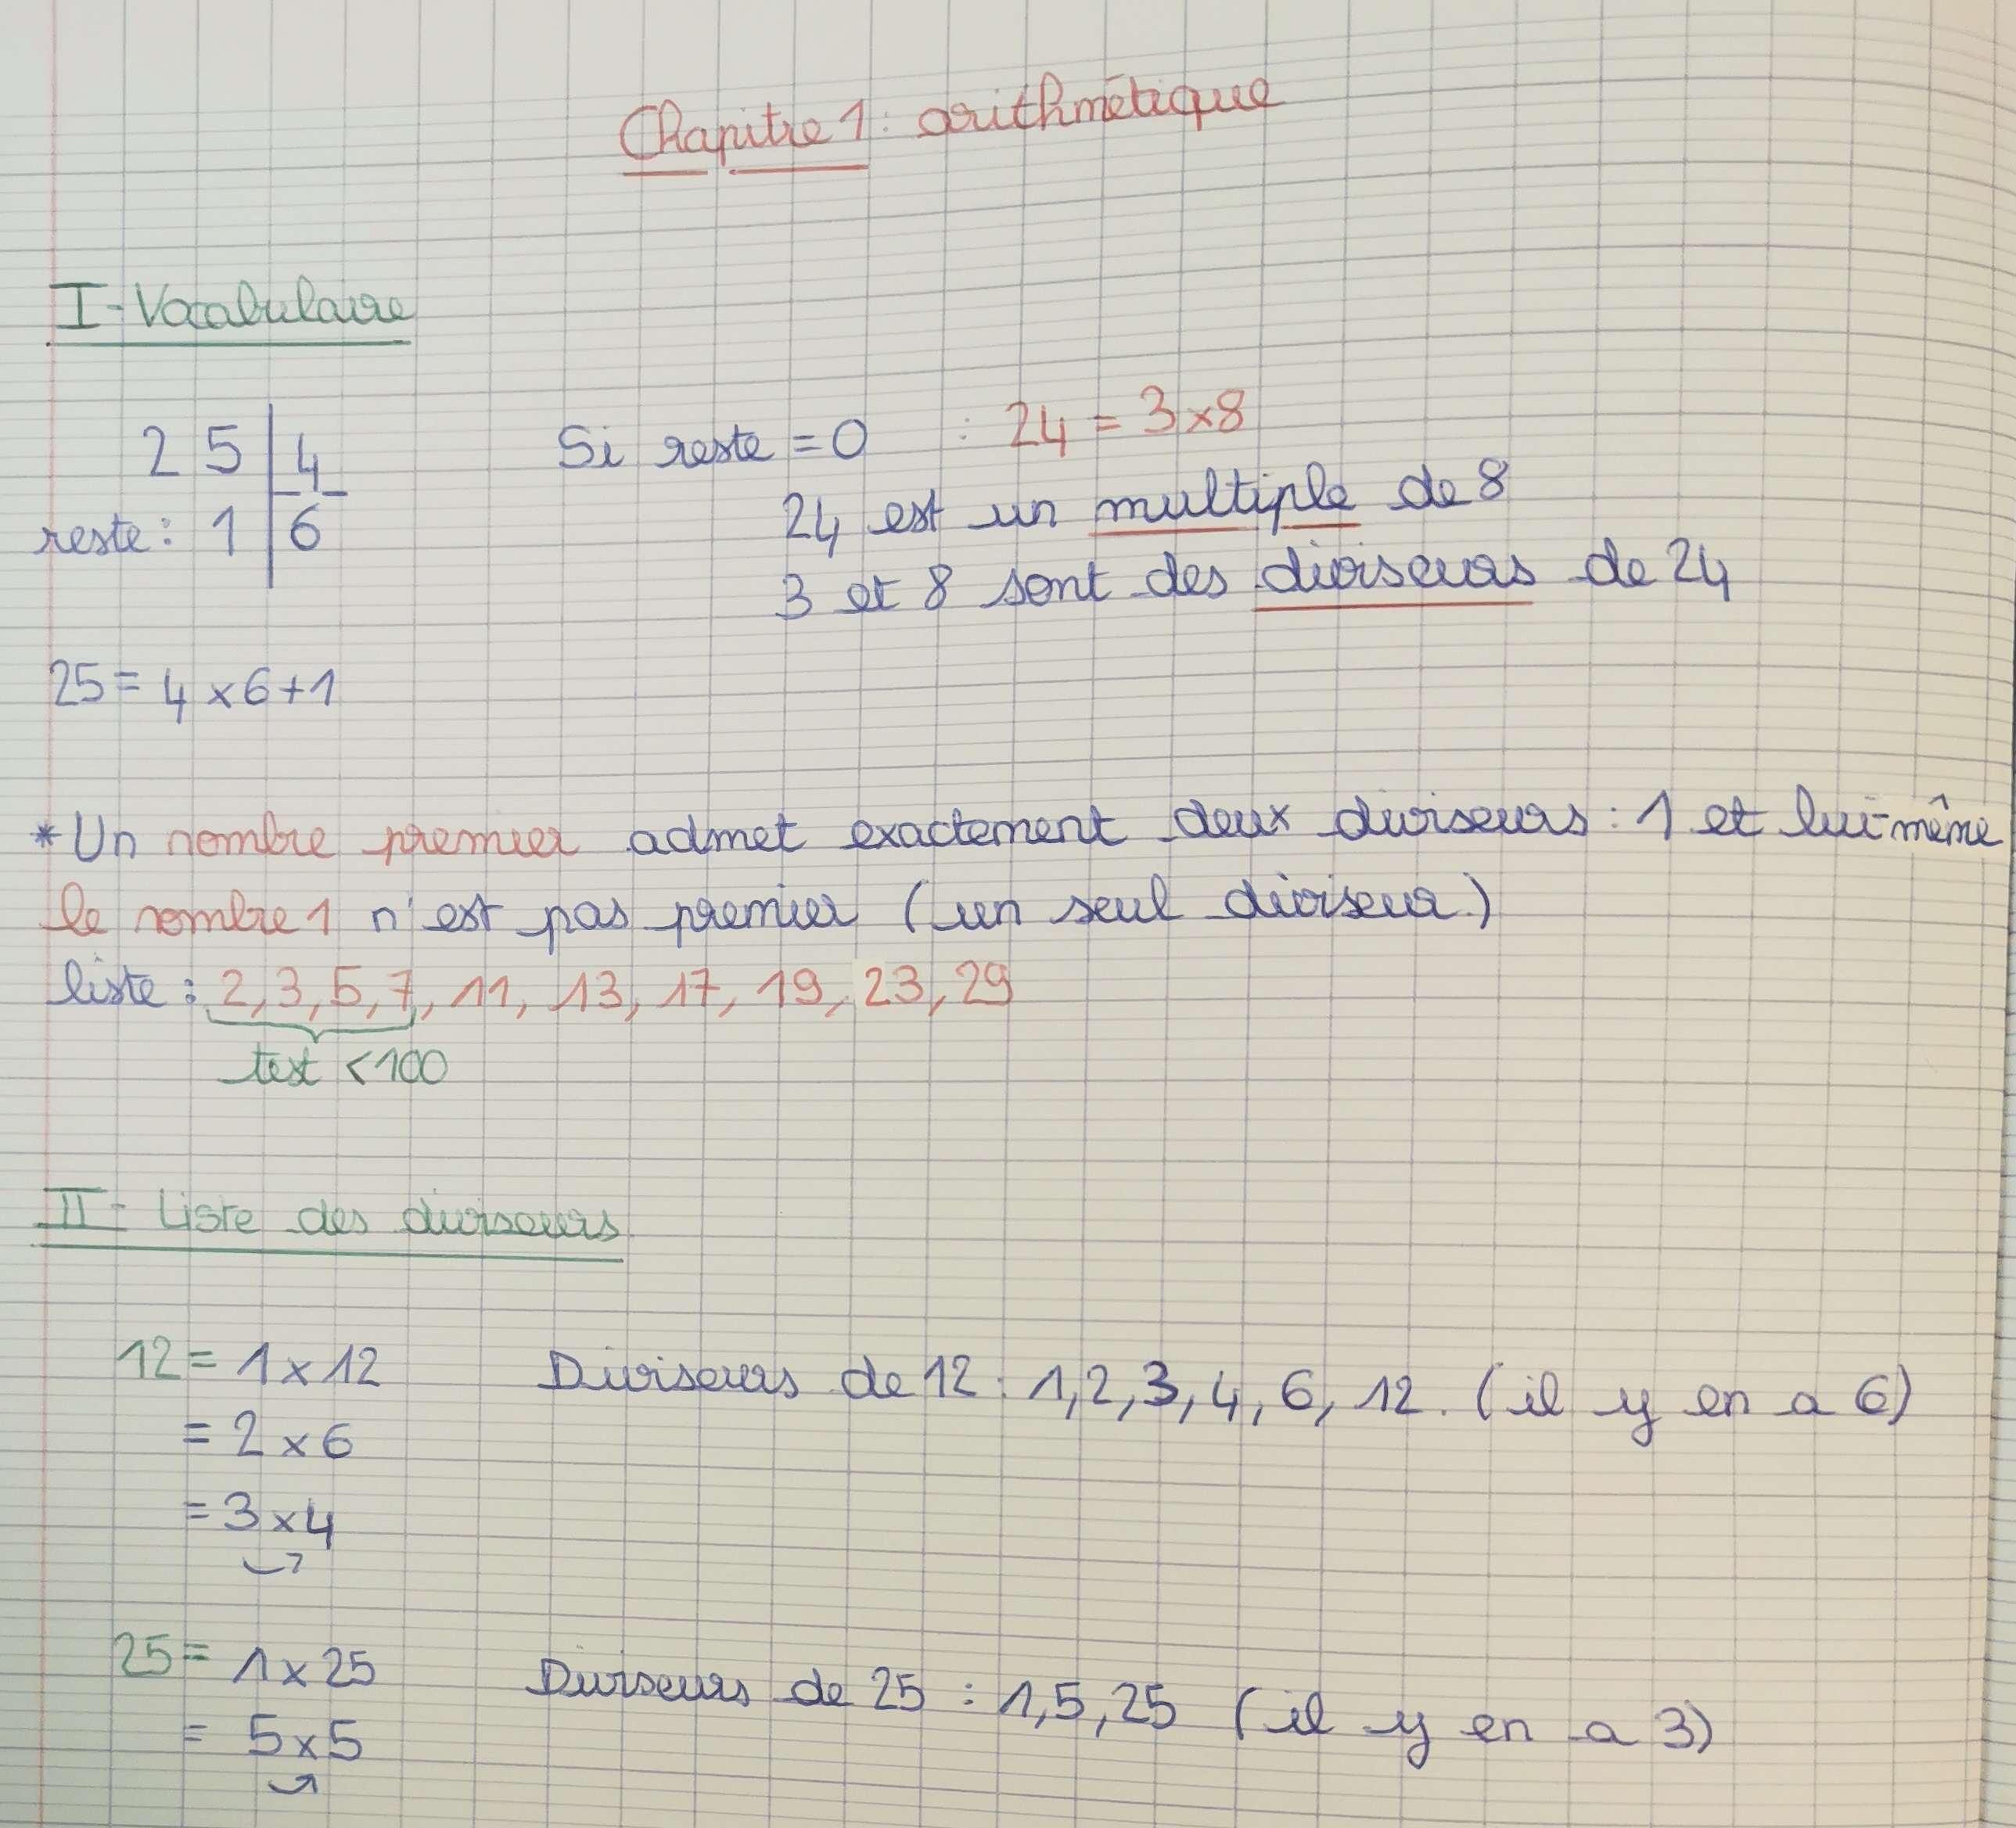 Chapitre 1 : arithmétique
I - Vocabulaire
25 | 4
reste : 1 | 6
25 = 4 x 6 + 1
Si reste = 0 : 24 = 3 x 8
24 est un multiple de 8
3 et 8 sont des diviseurs de 24
* Un nombre premier admet exactement deux diviseurs : 1 et lui-même
le nombre 1 n'est pas premier (un seul diviseur)
liste : 2, 3, 5, 7, 11, 13, 17, 19, 23, 29
test < 100
II - Liste des diviseurs
12 = 1 x 12
= 2 x 6
= 3 x 4
Diviseurs de 12 : 1, 2, 3, 4, 6, 12. (il y en a 6)
25 = 1 x 25
= 5 x 5
Diviseurs de 25 : 1, 5, 25 (il y en a 3)